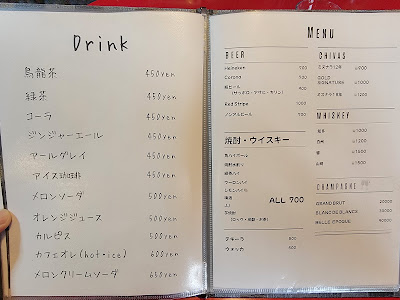 Drink
烏龍茶 450yen
緑茶 450yen
コーラ 450yen
ジンジャーエール 450yen
アールグレイ 450yen
アイス珈琲 450yen
メロンソーダ 500yen
オレンジジュース 500yen
カルピス 500yen
カフェオレ(hot・ice) 600yen
メロンクリームソーダ 650yen
MENU
BEER
Heineken 700
Corona 700
瓶ビール 600
(サッポロ・アサヒ・キリン)
Red Stripe 1000
ノンアルビール 700
焼酎・ウイスキー
ALL 700
テキーラ 800
ウォッカ 800
CHIVAS
ミズナラ12年 ¥900
GOLD
SIGNATURE ¥1000
ミズナラ18年 ¥1200
WHISKEY
知多 ¥1000
白州 ¥1200
響 ¥1500
山崎 ¥1500
CHAMPAGNE
GRAND BRUT 20000
BLANC DE BLANCS 30000
BELLE EPOQUE 40000